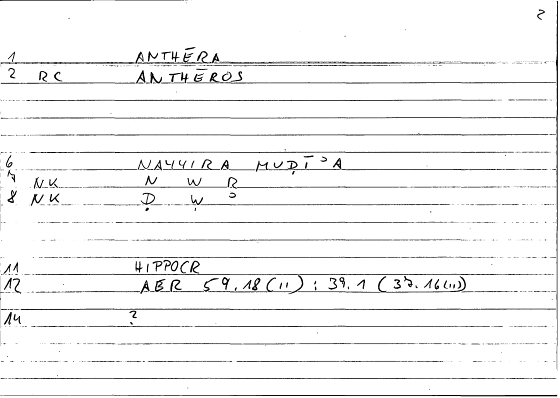 2
1 ANTHĒRA
2 RC ANTHĒROS
6 NAYYIRA MUḌĪʾA
7 NK N W R
8 NK Ḍ W ʾ
11 HIPPOCR
12 AER 59.18 (11) : 39.1 ( 37.16 (11)
14 ?